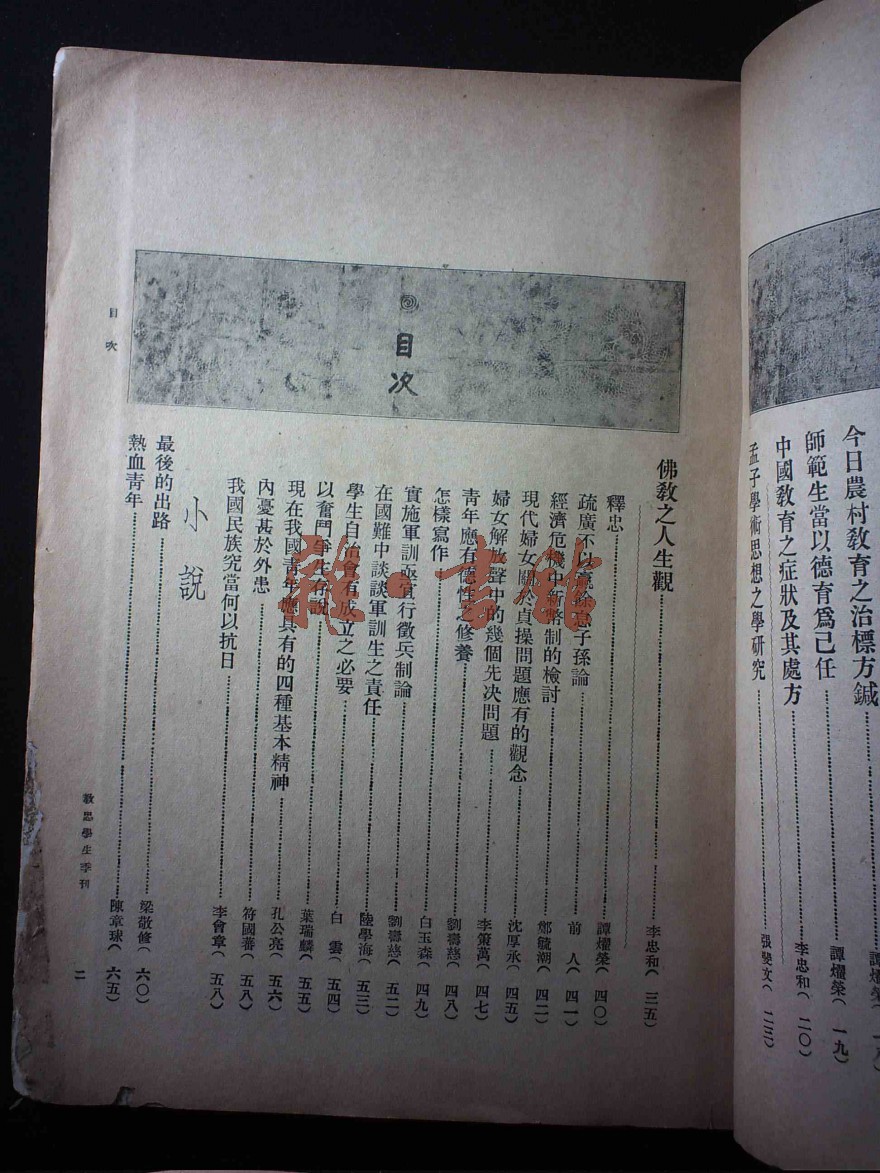 今日農村教育之治標方鍼 譚爔榮
師範生當以德育爲己任 譚爔榮(一九)
中國教育之症狀及其處方 李忠和(二〇)
孟子學術思想之學研究 張斐文(二三)
目次
佛教之人生觀 李忠和(三五)
釋忠 譚爔榮(四〇)
疏廣不以贏餘怠子孫論 前人(四一)
經濟危機中新幣制的檢討 鄭毓潮(四二)
現代婦女關於貞操問題應有的觀念 沈厚永(四五)
婦女解放聲中的幾個先决問題 李策萬(四七)
青年應有德性之修養 劉壽慈(四八)
怎樣寫作 白玉森(四九)
實施軍訓亟宜實行徵兵制論 劉壽慈(五二)
在國難中談談軍訓生之責任 陸學海(五三)
學生自治會有成立之必要 白雲(五四)
以奮鬥爭生存說 葉瑞麟(五五)
現在我國青年應具有的四種基本精神 孔公亮(五六)
內憂甚於外患 符國蕃(五八)
我國民族究當何以抗日 李會章(五八)
小說
最後的出路 梁敬修(六〇)
熱血青年 陳章球(六五)
目次
教思學生季刊
二
雜書館